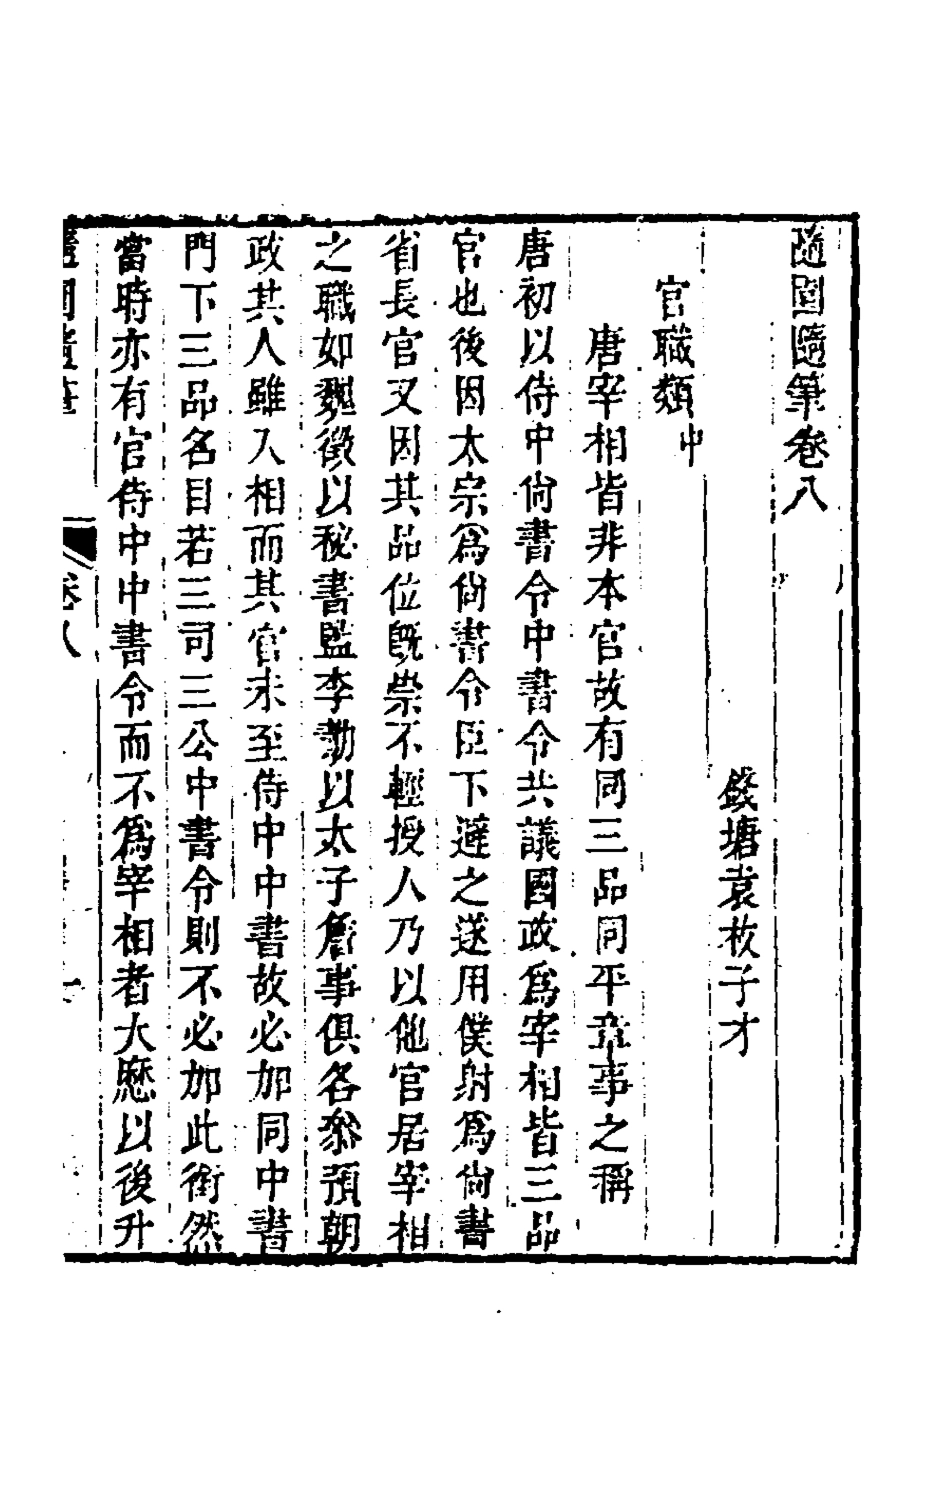 隨園隨筆卷八
錢塘袁枚子才
官職類中
唐宰相皆非本官故有同三品同平章事之稱
唐初以侍中尙書令中書令共議國政爲宰相皆三品
官也後因太宗爲尙書令臣下避之遂用僕射爲尙書
省長官又因其品位旣崇不輕授人乃以他官居宰相
之職如魏徵以秘書監李勣以太子詹事俱各叅預朝
政其人雖入相而其官未至侍中中書故必加同中書
門下三品名目若三司三公中書令則不必加此銜然
當時亦有官侍中中書令而不爲宰相者大厯以後升
隨園隨筆 卷八